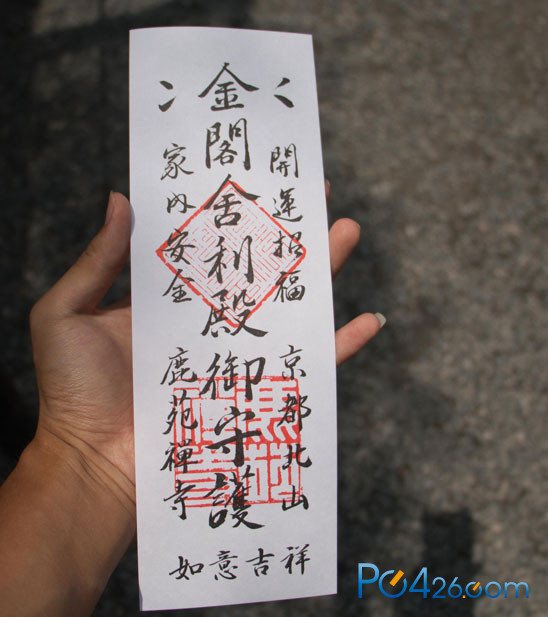 開運招福
京都北山
金閣舍利殿御守護
家内安全
鹿苑禅寺
如意吉祥
PC426.com